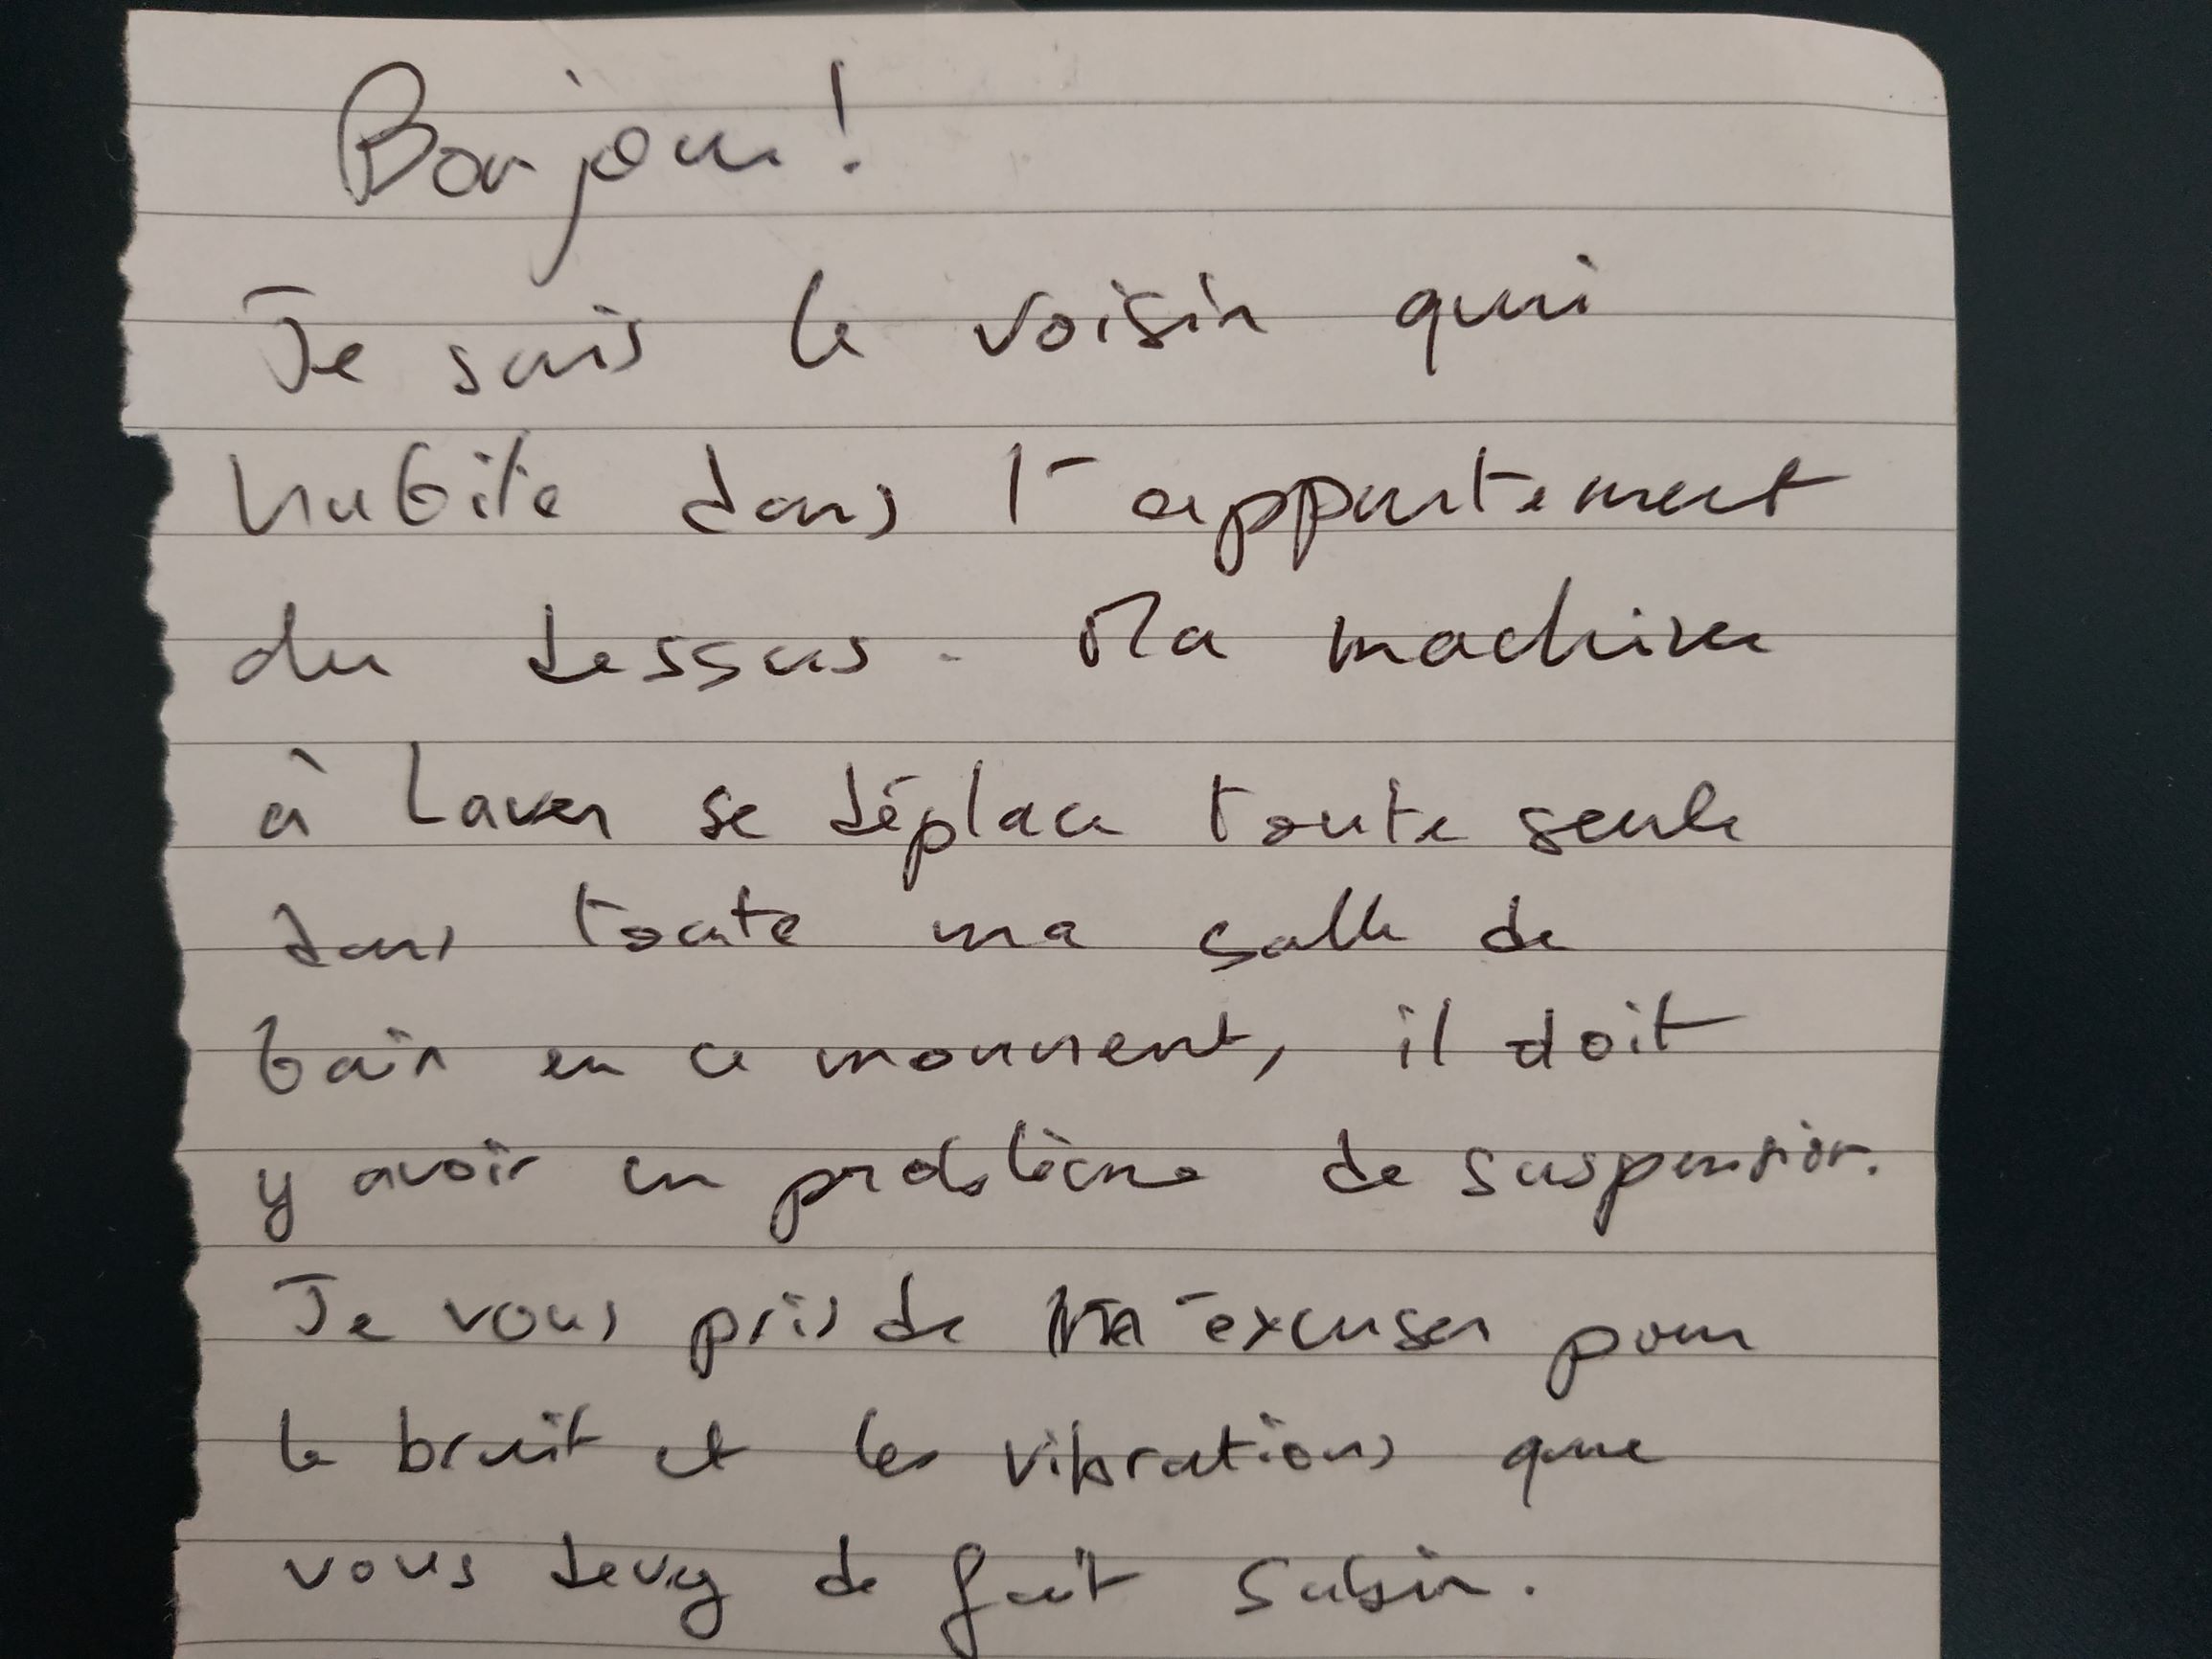 Bonjour !
Je suis le voisin qui
habite dans l'appartement
du dessus. Ma machine
à laver se déplace toute seule
dans toute ma salle de
bain en ce moment, il doit
y avoir un problème de suspension.
Je vous pris de m'excuser pour
le bruit et les vibrations que
vous devez de fait subir.